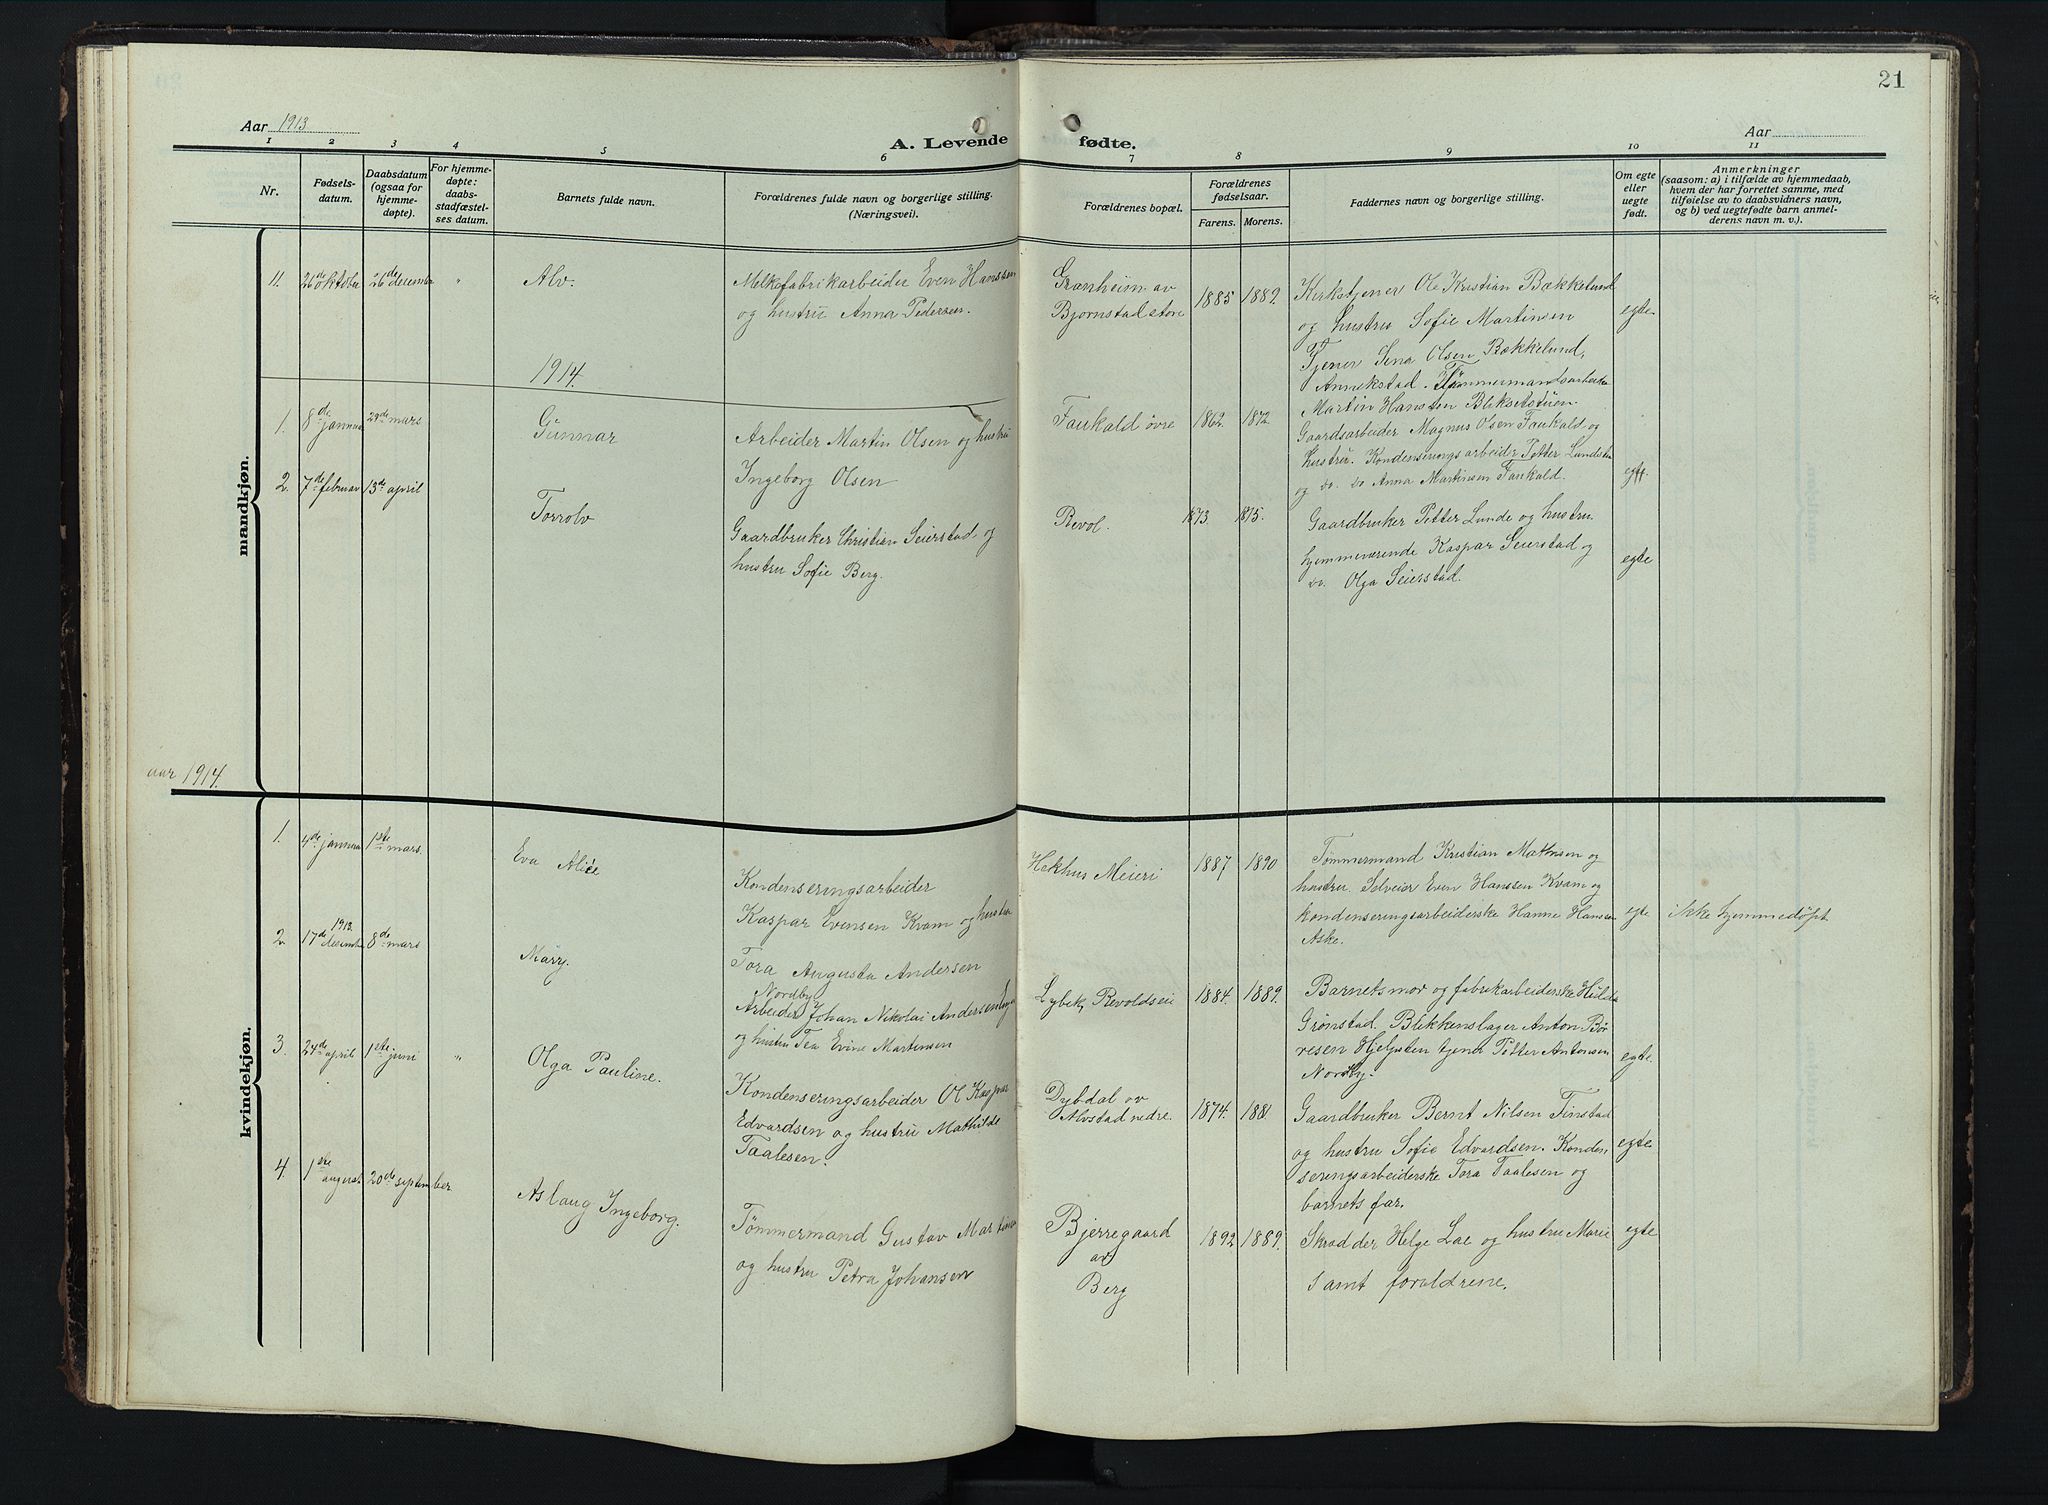 21
Aar 1913
A. Levende fødte.
Aar
1 2 3 4 5 6 7 8 9 10 11
Nr.
Fødsels-
datum.
Daabsdatum
(ogsaa for
hjemme-
døpte).
For hjemme-
døpte:
daabs-
stadfæstel-
ses datum.
Barnets fulde navn.
Forældrenes fulde navn og borgerlige stilling.
(Næringsvei).
Forældrenes bopæl.
Forældrenes
fødselsaar.
Farens. Morens.
Faddernes navn og borgerlige stilling.
Om egte
eller
uegte
født.
Anmerkninger
(saasom: a) i tilfælde av hjemmedaab,
hvem der har forrettet samme, med
tilføielse av to daabsvidners navn,
og b) ved uegtefødte barn anmel-
derens navn m. v.).
mandkjøn.
11. 26de oktober 26de december " Alv.
Melkefabrikarbeider Even Hanssen
og hustru Anna Pedersen.
Grønheim av
Bjørnstad store
1885 1889.
Kirketjener Ole Kristian Bækkelund
og hustru Sofie Martinsen
Tjener Lena Olsen Bækkelund,
Annekstad. Tømmermandsarbeider
Martin Hansen Bleksetstuen.
egte
1914.
1. 8de januar 29de mars Gunnar
Arbeider Martin Olsen og hustru
Ingeborg Olsen
Faukald øvre
1862. 1872.
Gaardsarbeider Magnus Olsen Faukald og
hustru. Kondenseringsarbeider Petter Lundsten
og do. do Anna Martinsen Faukald.
egte
2. 7de februar 13de april Torrolv
Gaardbruker Christian Seierstad og
hustru Sofie Berg.
Revol.
1873. 1875.
Gaardbruker Petter Lunde og hustru.
hjemmeværende Kaspar Seierstad og
do. Olga Seierstad.
egte
aar 1914.
kvindekjøn.
1. 4de januar 1ste mars. Eva Alice
Kondenseringsarbeider
Kaspar Evensen Kvam og hustru
Tora Augusta Andersen
Hekhus Meieri
1887 1890
Tømmermand Kristian Mathisen og
hustru. Selveier Even Hanssen Kvam og
kondenseringsarbeiderske Hanne Hansen
Aske.
egte
ikke hjemmedøpt
2. 1913. 17de desember 8de mars Mary.
Nordby
Arbeider Johan Nikolai Andersen
og hustru Tea Evine Martinsen
Lybek, Revoldseie
1884. 1889.
Barnets mor og fabrikarbeiderske Hilda
Grønstad. Blikkenslager Anton Bø-
resen Hjeljsten tjener Petter Antonsen
Nordby.
egte
3. 24de april 1ste juni " Olga Pauline.
Kondenseringsarbeider Ol Kaspar
Edvardsen og hustru Mathilde
Taalesen.
Dybdal av
Alvstad nedre.
1874. 1881
Gaardbruker Bernt Nilsen Finstad
og hustru Sofie Edvardsen. Konden
seringsarbeiderske Tora Taalesen og
barnets far.
egte
4. 1ste august 20de september Aslaug Ingeborg.
Tømmermand Gustav Martinsen
og hustru Petra Johansen
Bjerregaard
av
Berg
1892 1889.
Skrædder Helge Lae og hustru Marie
samt foraldrene.
egte